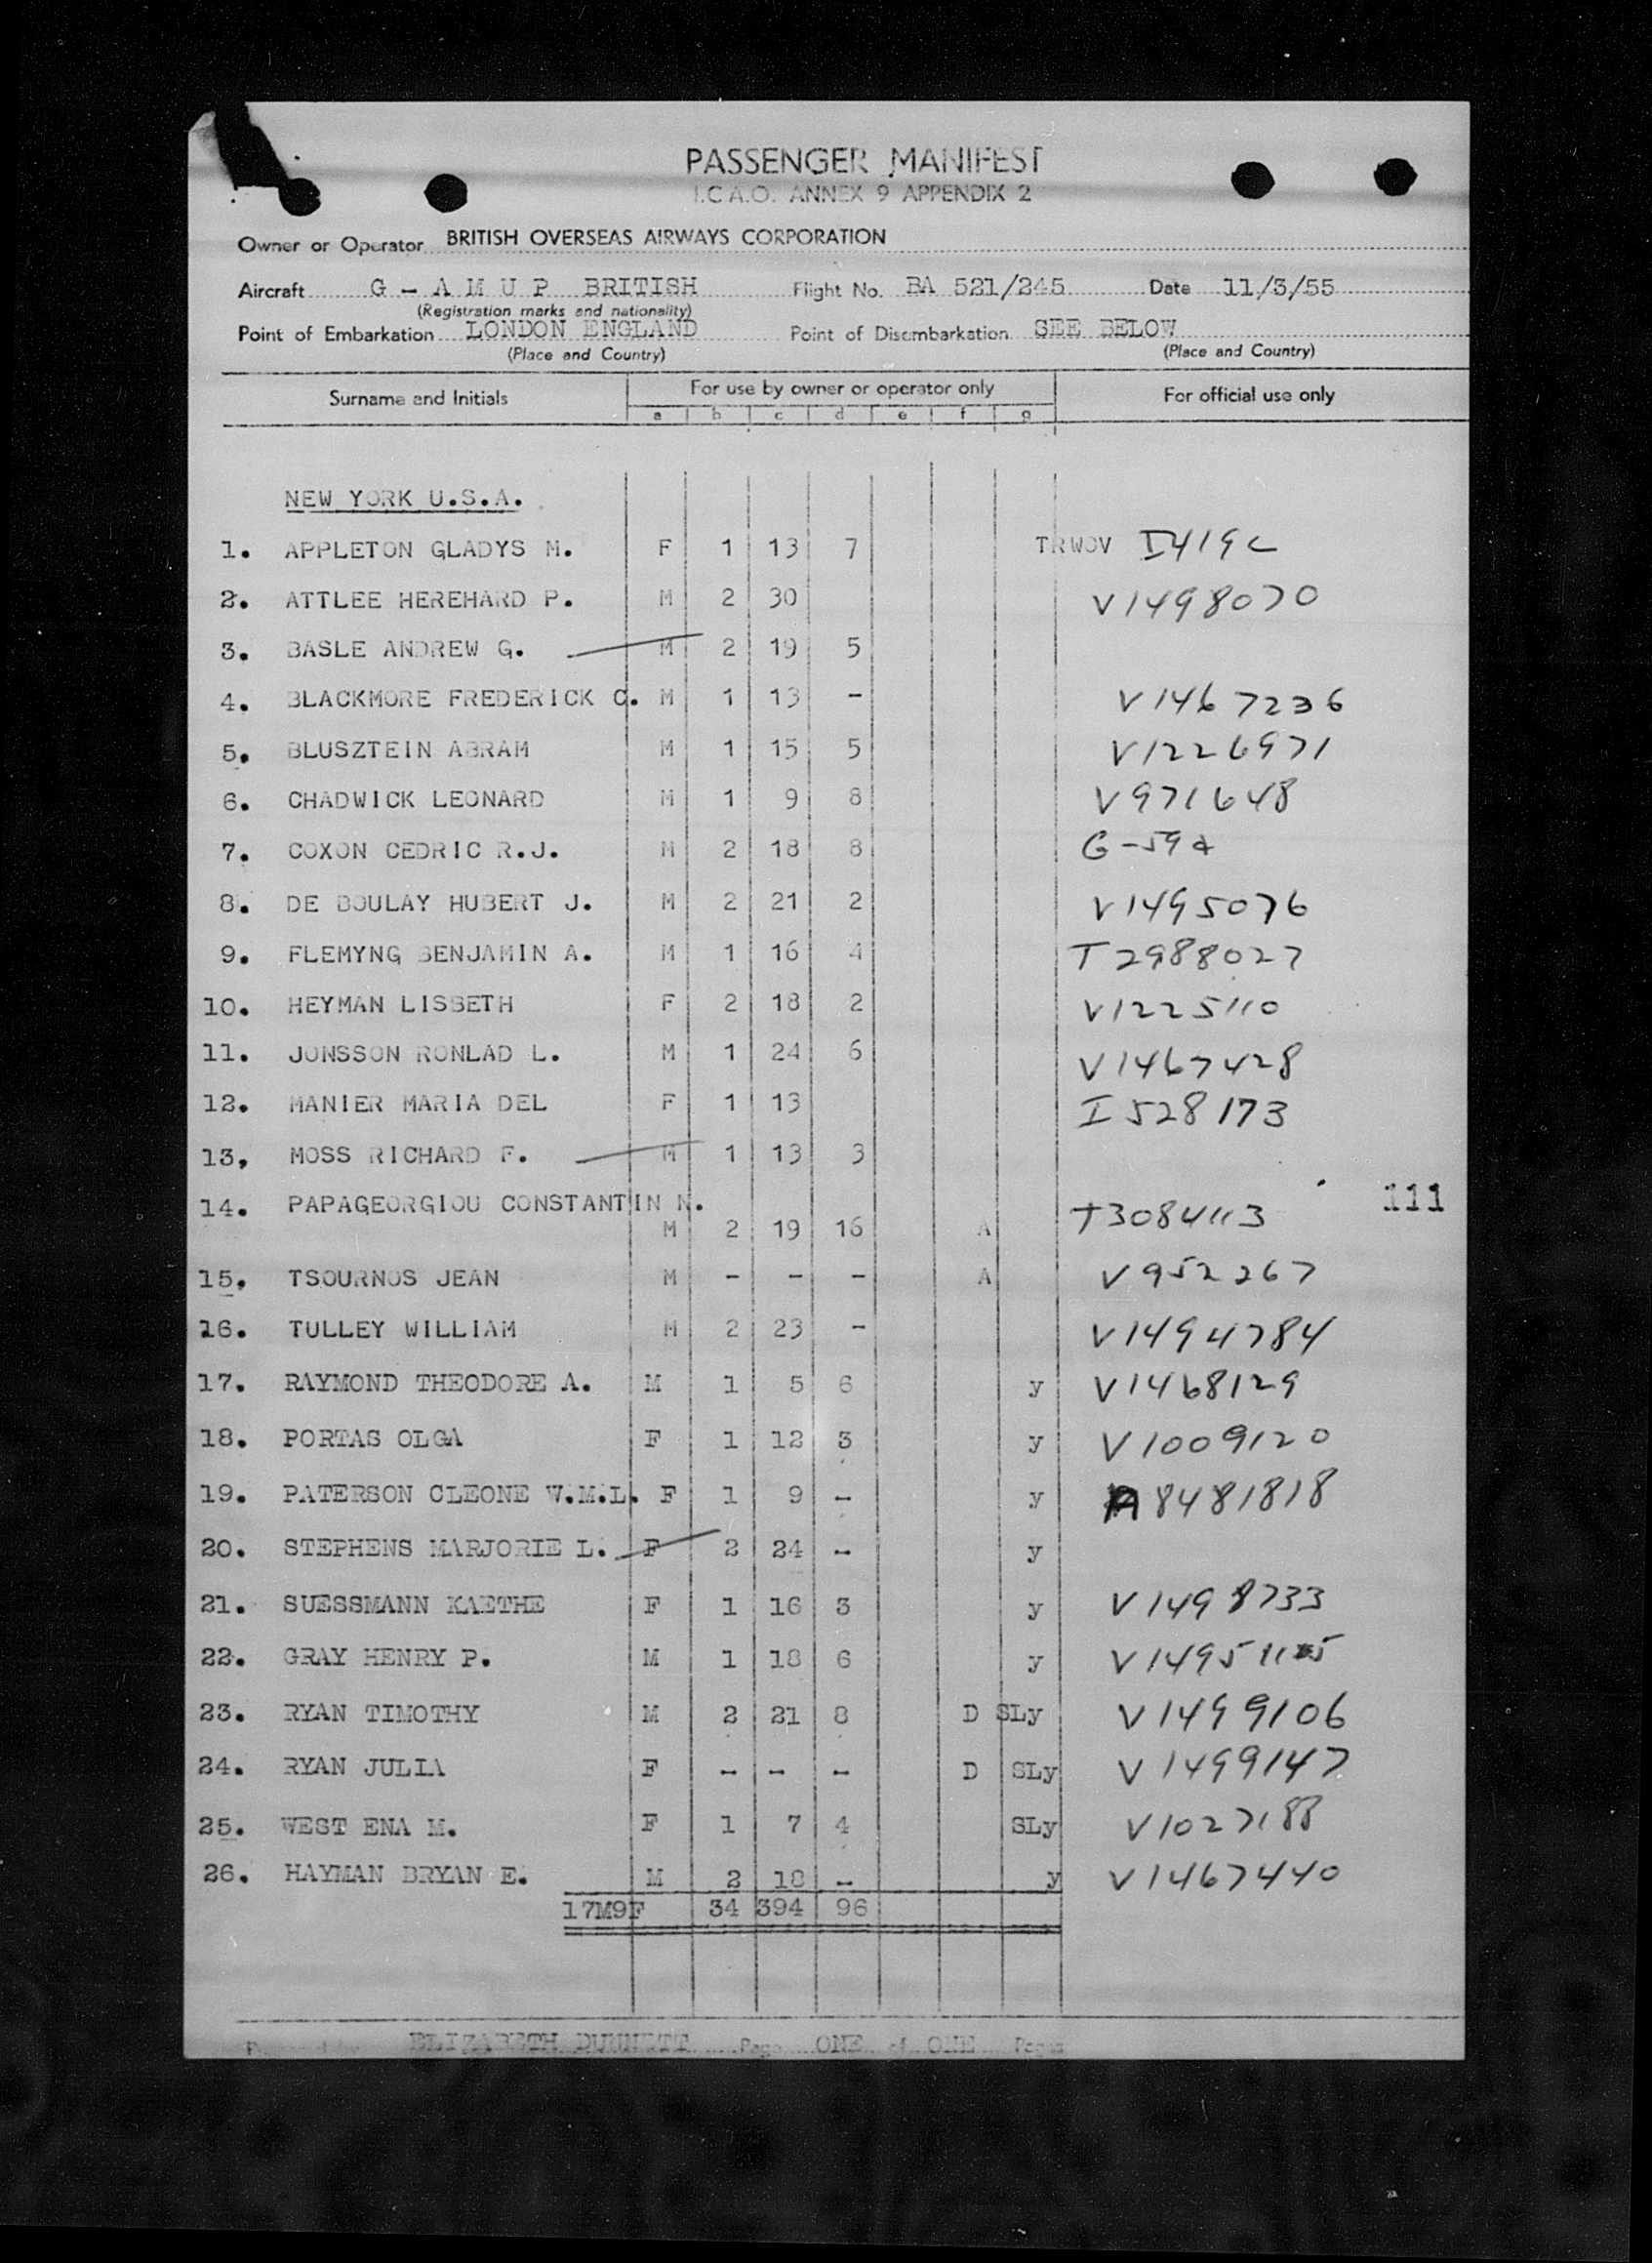 PASSENGER MANIFEST
I.C.A.O. ANNEX 9 APPENDIX 2
Owner or Operator BRITISH OVERSEAS AIRWAYS CORPORATION
Aircraft G - A M U P BRITISH Flight No. BA 521/245 Date 11/3/55
(Registration marks and nationality)
Point of Embarkation LONDON ENGLAND Point of Disembarkation SEE BELOW
(Place and Country) (Place and Country)
Surname and Initials For use by owner or operator only For official use only
a b c d e f g
NEW YORK U.S.A.
1. APPLETON GLADYS M. F 1 13 7 TRWOV I419C
2. ATTLEE HEREHARD P. M 2 30 V1498070
3. BASLE ANDREW G. M 2 19 5
4. BLACKMORE FREDERICK C. M 1 13 - V1467236
5. BLUSZTEIN ABRAM M 1 15 5 V1226971
6. CHADWICK LEONARD M 1 9 8 V971648
7. COXON CEDRIC R.J. M 2 18 8 G-59
8. DE BOULAY HUBERT J. M 2 21 2 V1495076
9. FLEMYNG BENJAMIN A. M 1 16 4 T2988027
10. HEYMAN LISBETH F 2 18 2 V1225110
11. JONSSON RONLAD L. M 1 24 6 V1467428
12. MANIER MARIA DEL F 1 13 I528173
13, MOSS RICHARD F. M 1 13 3
14. PAPAGEORGIOU CONSTANTIN N. T3084113 111
M 2 19 16 A
15, TSOURNOS JEAN M - - - A V952267
16. TULLEY WILLIAM M 2 23 - V1494784
17. RAYMOND THEODORE A. M 1 5 6 y V1468129
18. PORTAS OLGA F 1 12 3 y V1009120
19. PATERSON CLEONE W.M.L. F 1 9 - y A8481818
20. STEPHENS MARJORIE L. F 2 24 - y
21. SUESSMANN KAETHE F 1 16 3 y V1498733
22. GRAY HENRY P. M 1 18 6 y V1495115
23. RYAN TIMOTHY M 2 21 8 D SLy V1499106
24. RYAN JULIA F - - - D SLy V1499147
25. WEST ENA M. F 1 7 4 SLy V1027188
26. HAYMAN BRYAN E. M 2 18 - y V1467440
17M9F 34 394 96
ELIZABETH DUNNETT Page ONE of ONE Pages